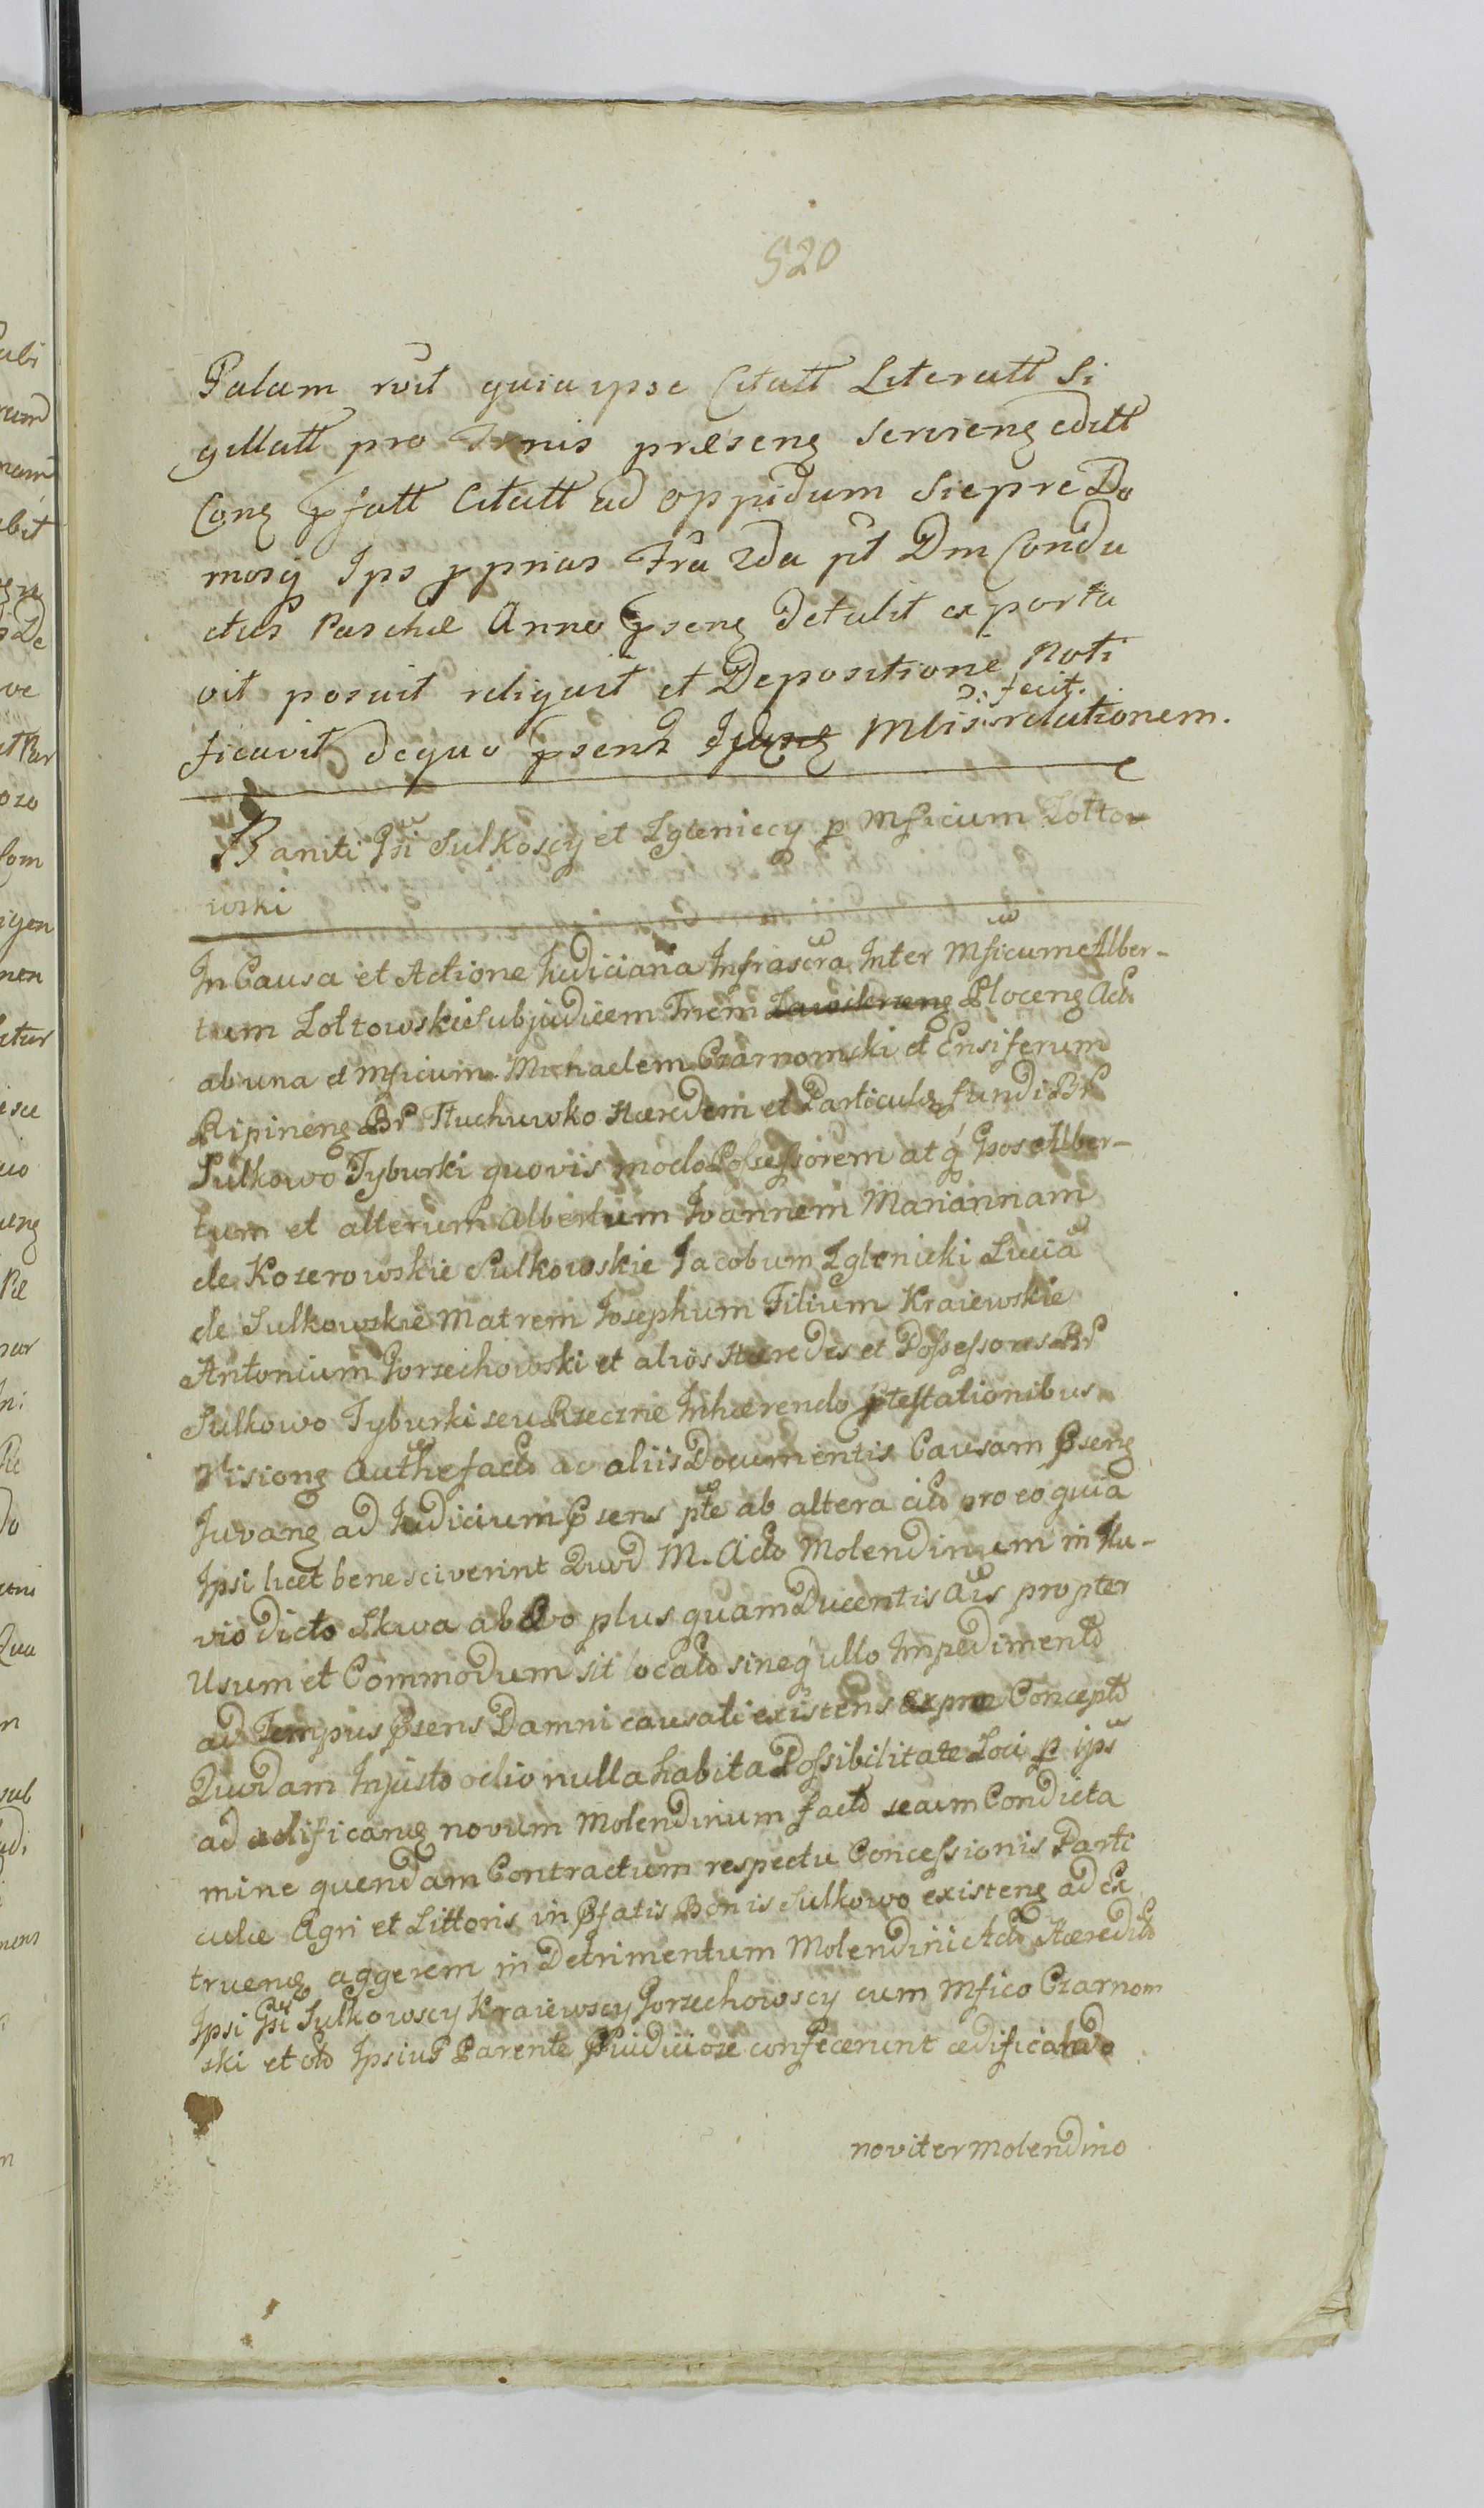 520
Palam rvit quia ipse Citatt Literatt Si
gillatt pro Trnis præseng servieng editt
Cong pfatt Citatt ad oppidum Siepre Do
mosq Ips pprias Fra 2da pt Dm Condu
ctus Paschæ Anno pseng Detulit exporta
vit posuit reliquit et Depositione Noti
fecit.
ficavit dequo psens Mlis relationem.
Baniti Gsi Sulkoscy et Zgleniccy p Mficum Zołtow
wski
In Causa et Actione Judiciaria Infrascra Inter Mficum Alber-
tum Zołtowski Subjudicem Trrem Ploceng Act
ab una et Mficum Michaelem Czarnomski Ensiferum
Ripineng Br Tłuchuwko Hæredem et Particulæ fundi Br
Sulkowo Tyburki quovis modo Possessorem atq Gsos Alber-
tum et alterum Albertum Joannem Mariannam
de Kozerowskie Sulkowskie Jacobum Zglenicki Lucia
de Sulkowskie Matrem Josephum Filium Kraiewskie
Antonium Gorzechowski et alios Hæredes et Possessores Br
Sulkowo Tyburki seu Rzeczne Inhærendo ptestationibus
Visiong Authe facto ac aliis Documentis Causam pseng
Juvang ad Judicium psens pte ab altera cito pro eo quia
Ipsi licet bene sciverint Quod M. Acto Molendinum in flu-
vio dicto Skwa ab ævo plus quam Ducentis Ais propter
Usum et Commodum sit locato sineq ullo Impedimento
ad Tempus psens Damni causati existens ex præ Concepto
Quodam Injusto odio nulla habita Possibilitate Loci p ips
ad ædificang novum Molendinum facto secum Condicta
mine quendam Contractum respectu Concessionis Parti
culæ Agri et Littoris in pfatis Bonis Sulkowo existeng ad Ex
trueng aggerem in Detrimentum Molendini Acto Hæredito
Ipsi Gsi Sulkowscy Kraiewscy Gorzechowscy cum Mfico Czarnom
ski et oto Ipsius Parente pjudiciose confecerunt ædificato
noviter molendino